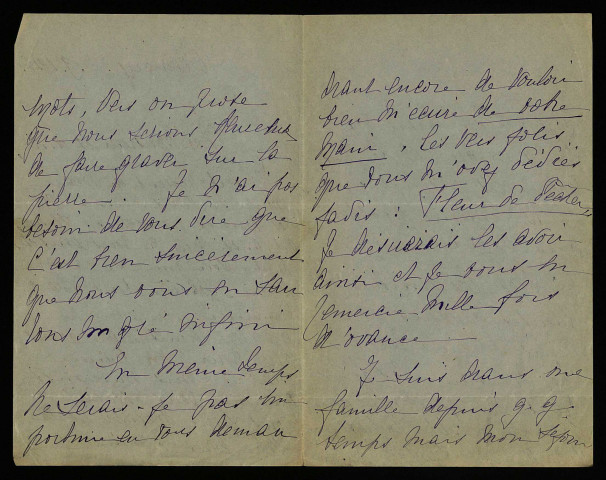 mots, vers ou prose
que nous serions heureux
de faire graver sur la
pierre. Je n'ai pas
besoin de vous dire que
c'est bien sincèrement
que nous vous en sau
rons un gré infini
En même temps
ne serais-je pas im
portune en vous deman
dant encore de vouloir
bien m'écrire de votre
main, les vers jolis
que vous m'avez dédiés
jadis: Fleur de
Je désirerais les avoir
ainsi et je vous en
remercie mille fois
d'avance.
Je suis dans ma
famille depuis q. q.
temps mais mon séjour